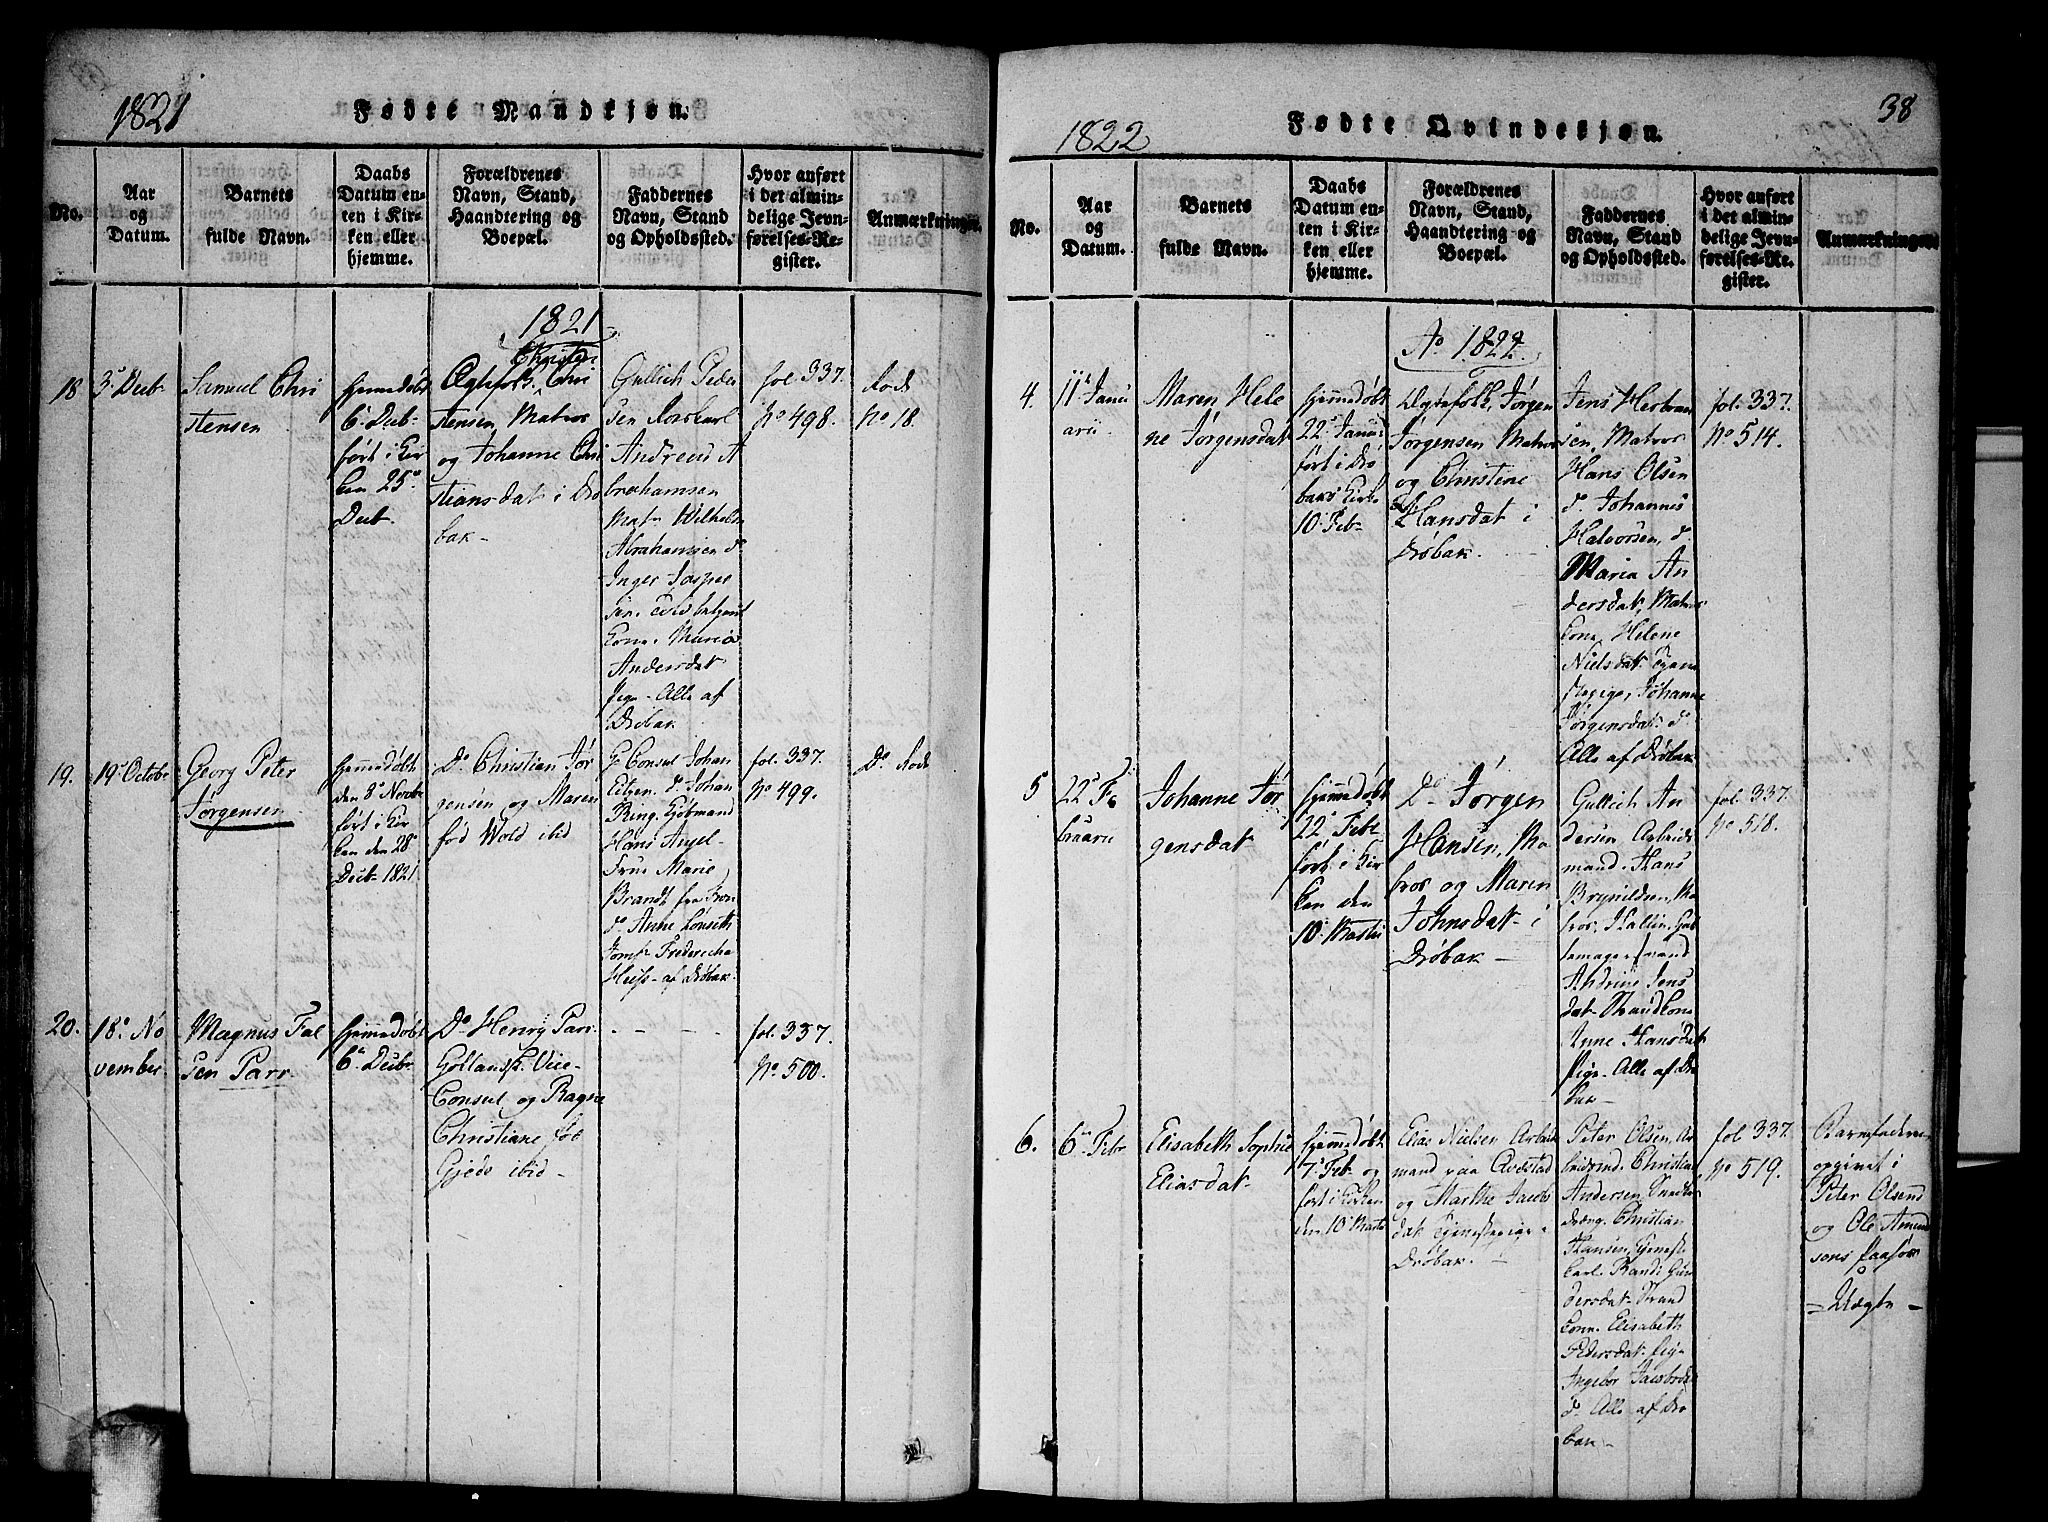 1821
Fødte Mandkjøn.
No.
Aar
og
Datum.
Barnets
fulde Navn.
Daabs
Datum en-
ten i Kir-
ken eller
hjemme.
Forældrenes
Navn, Stand,
Haandtering og
Boepæl.
Faddernes
Navn, Stand
og Opholdssted.
Hvor anført
i det almin-
delige Jevn-
førelses-Re-
gister.
Anmærkninger.
1821
18
3die Decbr
Samuel Chri
stensen
hjemmedøbt
6te Decbr
ført i Kir
ken 25de
Decbr
Ægtefolk Christen
Chri
stensen, Matros
og Johanne Chri
stiansdat i Drø
bak
Gullich Peder
sen Rorskarl
Andreas A
brahamsen
Matr Wilhelm
Abrahamsen do
Inger Jasper
sen
kone. Maria
Andersdat
Pige - Alle af
Drøbak
fol. 337.
No 498.
Rode
No 18.
19.
19de Octobr
Georg Peter
Jørgensen
hjemmedøbt
den 8de Novbr
ført i Kir
ken den 28de
Decbr 1821
Do Christian Jør
gensen og Maren
fød Wold ibid
Consul Johan
Eiben. do Johan
Ring. Kjøbmand
Hans Angel
Frue Marie
Brandt fra
do Anne Lonseth
Jomfr Fredericha
Huss - af Drøbak
fol. 337.
No 499.
Do Rode
20.
18de No
vember
Magnus Fal
sen Parr
hjemmedøbt
6te Decbr
Do Henry Parr
Hollandsk Vice-
Consul og Ragne
Christiane fød
Gjede ibid
- - -
fol. 337.
No 500.
38
1822
Fødte Qvindekjøn.
No.
Aar
og
Datum.
Barnets
fulde Navn.
Daabs
Datum en-
ten i Kir-
ken eller
hjemme.
Forældrenes
Navn, Stand,
Haandtering og
Boepæl.
Faddernes
Navn, Stand
og Opholdssted.
Hvor anført
i det almin-
delige Jevn-
førelses-Re-
gister.
Anmærkninger.
Ao 1822.
4.
11te Janu
arii
Maren Hele
ne Jørgensdat
hjemmedøbt
22de Janu:
ført i Drø
baks Kirke
10de Febr
Ægtefolk, Jørgen
Jørgensen Matros
og Christine
Hansdat i
Drøbak.
Jens Herbran
sen, Matros
Hans Olsen
do Johannes
Halvorsen, do
Maria An
dersdat, Matros
kone, Helene
Nielsdat Tjene
stepige, Johanne
Jørgensdat do
Alle af Drøbak
fol. 337.
No 514.
5
22de Fe
bruarii
Johanne Jør
gensdat
hjemmedøbt
22de Febr
ført i Kir
ken den
10de Martii
Do Jørgen
Hansen, Ma
tros og Maren
Johnsdat i
Drøbak
Gullich An
dersen Arbeids
mand. Hans
Brynildsen, Ma
tros.
Andrine Jens
dat
Anne Hansdat
Pige. Alle af Drø
bak
fol. 337.
No 518.
6.
6te Febr
Elisabeth Sophie
Eliasdat
hjemmedøbt
7de Febr og
ført i Kirken
den 10de Martii
Elias Nielsen Arbeids
mand paa Qvæstad
og Marthe Jacobs
dat Tjenestepige
Drøbak.
Peter Olsen, Ar
beidsmd. Christian
Andersen Snedker
dreng. Christian
Hansen, Tjeneste
karl. Randi Gun
dersdat Strand
kone. Elisabeth
Pedersdat pige
Ingebor Jacobsdat
do Alle af Drø
bak
fol 337.
No 519.
Barnefaderen
opgivet i
Peter Olsens
og Ole Amund
sens paahør
- Uægte -